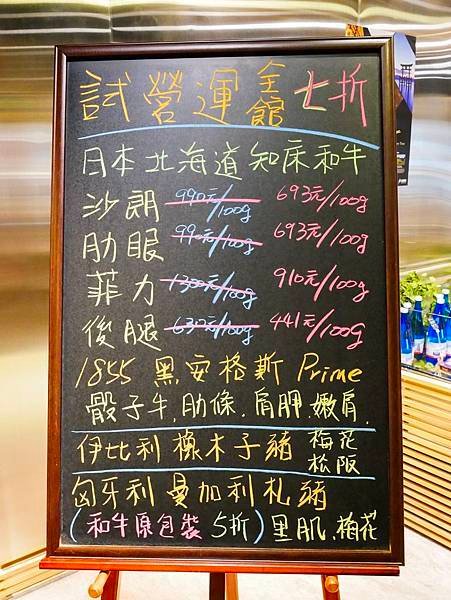 試營運全館七折
日本北海道知床和牛
沙朗 990元/100g 693元/100g
肋眼 990元/100g 693元/100g
菲力 1300元/100g 910元/100g
後腿 630元/100g 441元/100g
1855 黑安格斯 Prime
骰子牛.肋條.肩胛.嫩肩.
伊比利橡木子豬 梅花 松阪
匈牙利曼加利札豬
(和牛原包裝 5折) 里肌.梅花